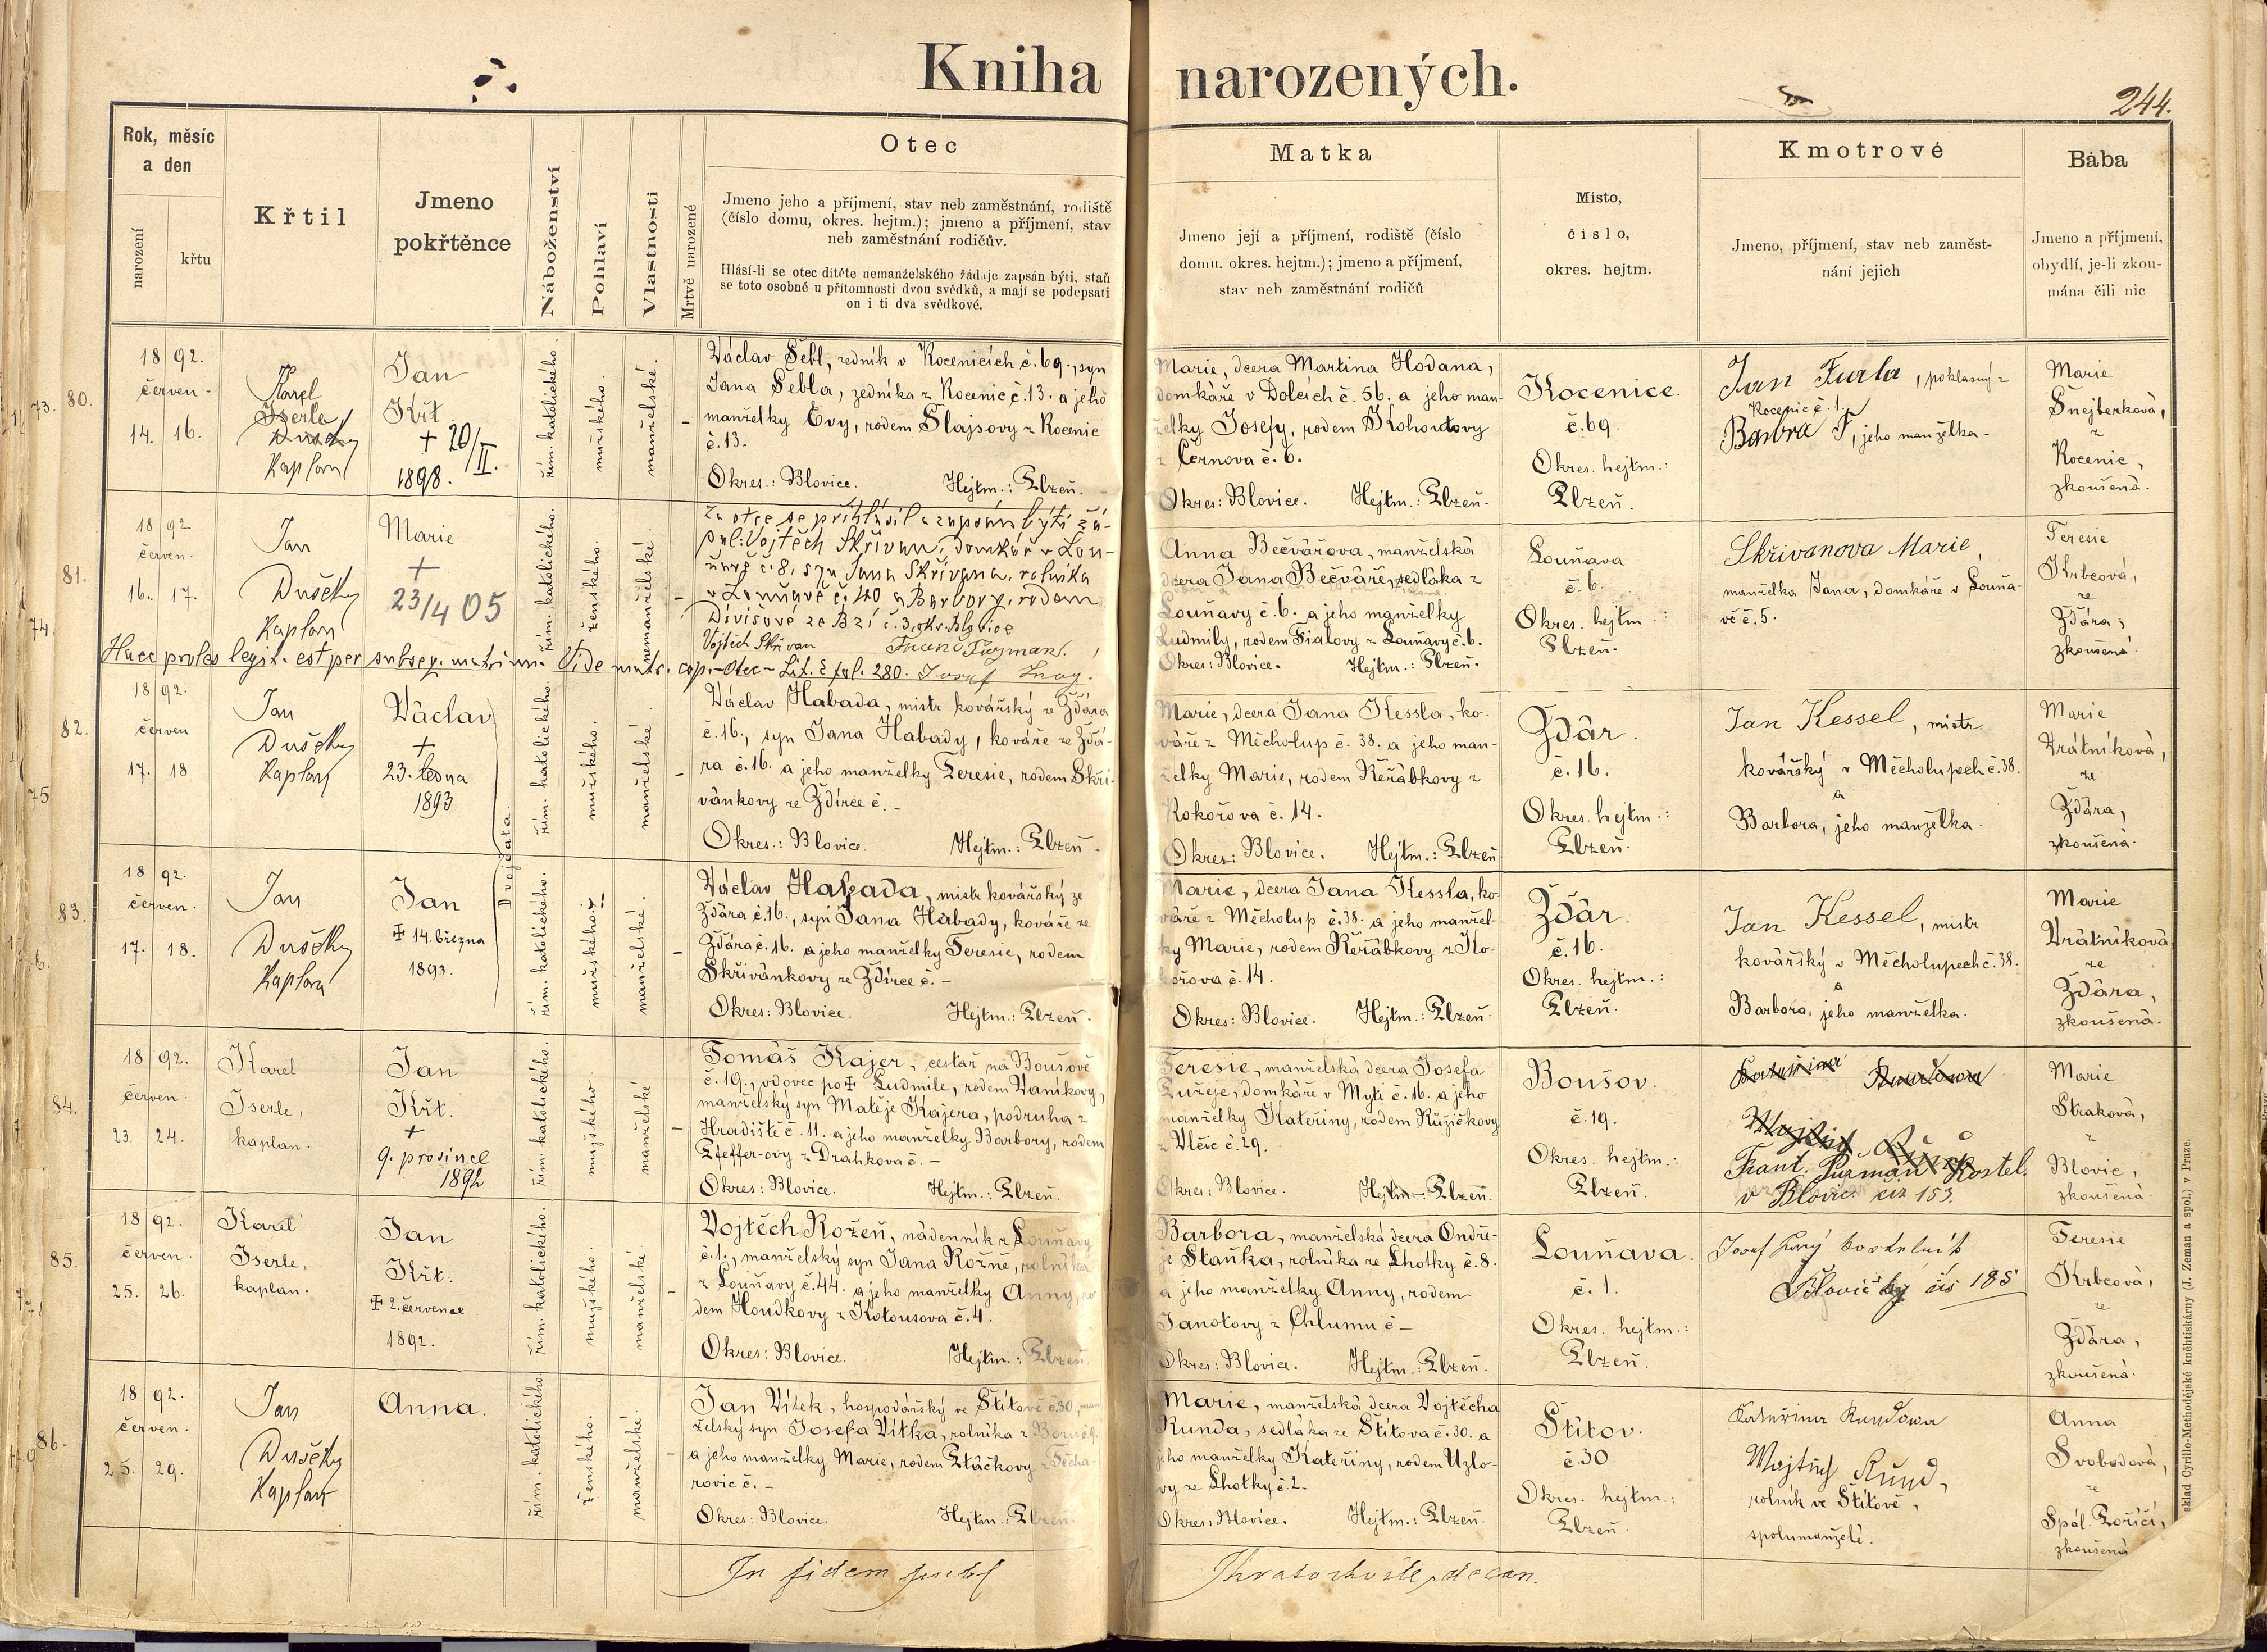 Kniha narozených.
244.
Rok, měsíc
a den
narození
křtu
Křtil
Jmeno
pokřtěnce
Náboženství
Pohlaví
Vlastnosti
Mrtvě narozené
Otec
Jmeno jeho a příjmení, stav neb zaměstnání, rodiště
(číslo domu, okres. hejtm.); jmeno a příjmení, stav
neb zaměstnání rodičův.
Hlásí-li se otec dítěte nemanželského žádaje zapsán býti, staň
se toto osobně u přítomnosti dvou svědků, a mají se podepsati
on i ti dva svědkové.
Matka
Jmeno její a příjmení, rodiště (číslo
domu, okres. hejtm.); jmeno a příjmení,
stav neb zaměstnání rodičů
Místo,
číslo,
okres. hejtm.
Kmotrové
Jmeno, příjmení, stav neb zaměst-
nání jejich
Bába
Jmeno a příjmení,
obydlí, je-li zkou-
mána čili nic
80.
18 92.
červen.
14. 16.
Karel
Iserle
Dušek
Kaplan
Jan
Křt.
+ 20/II.
1898.
řím. katolického.
mužského.
manželské.
Václav Šebl, zedník v Kocenicích č. 69., syn
Jana Šebla, zedníka z Kocenic č. 13. a jeho
manželky Evy, rodem Šlajsovy z Kocenic
č. 13.
Okres.: Blovice. Hejtm.: Plzeň.
Marie, dcera Martina Hodana,
domkáře v Dolcích č. 56. a jeho man-
želky Josefy, rodem Kohoutovy
z Černova č. 6.
Okres: Blovice. Hejtm.: Plzeň.
Kocenice.
č. 69.
Okres. hejtm.:
Plzeň.
Jan
Kocenic č. 1.
Barbora, jeho manželka.
Marie
Šnejberková,
z
Kocenic,
zkoušená.
81.
18 92
červen.
16. 17.
Jan
Dušek
Kaplan
Marie
+
23/4 05
řím. katolického.
ženského.
nemanželské.
Za otce se přihlásil a zapsán býti žá-
dal: Vojtěch Skřivan, domkář v Lou-
ňavě č. 8, syn Jana Skřivana, rolníka
v Louňavě č. 40 a Barbory, rodem
Divišové ze Bzí č. 3, okr. Blovice
Vojtěch Skřivan
Haec proles legit. est per subseq. matrim. Vide matr. cop. Otec Lit. č fol. 280. Josef
Anna Bečvářova, manželská
dcera Jana Bečváře, sedláka z
Louňavy č. 6. a jeho manželky
Ludmily, rodem Fialovy z Louňavy č. 6.
Okres: Blovice. Hejtm.: Plzeň.
Louňava
č. 6.
Okres. hejtm.:
Plzeň.
Skřivanova Marie,
manželka Jana, domkáře v Louňa-
vě č. 5.
Teresie
Krbcová,
ze
Žďára,
zkoušená.
82.
18 92.
červen
17. 18
Jan
Dušek
Kaplan
Václav
+
23. ledna
1893
Dvojčata.
řím. katolického.
mužského.
manželské.
Václav Habada, mistr kovářský ze Žďára
č. 16., syn Jana Habady, kováře ze Žďá-
ra č. 16. a jeho manželky Teresie, rodem Skři-
vánkovy ze Ždírce č. -
Okres.: Blovice. Hejtm.: Plzeň.
Marie, dcera Jana Kessla, ko-
váře z Měcholup č. 38. a jeho man-
želky Marie, rodem Řeřábkovy z
Kokořova č. 14.
Okres: Blovice. Hejtm.: Plzeň
Žďár.
č. 16.
Okres. hejtm.:
Plzeň.
Jan Kessel, mistr
kovářský v Měcholupech č. 38.
a
Barbora, jeho manželka.
Marie
Vrátníková,
ze
Žďára,
zkoušená.
83.
18 92.
červen.
17. 18.
Jan
Dušek
Kaplan
Jan
✝ 14. března
1893.
řím. katolického.
mužského.
manželské.
Václav Habada, mistr kovářský ze
Žďára č. 16., syn Jana Habady, kováře ze
Žďára č. 16. a jeho manželky Teresie, rodem
Skřivánkovy ze Ždírce č. -
Okres: Blovice. Hejtm.: Plzeň.
Marie, dcera Jana Kessla, ko-
váře z Měcholup č. 38. a jeho manžel-
ky Marie, rodem Řeřábkovy z Ko-
kořova č. 14.
Okres: Blovice. Hejtm.: Plzeň.
Žďár.
č. 16.
Okres. hejtm.:
Plzeň.
Jan Kessel, mistr
kovářský v Měcholupech č. 38.
a
Barbora, jeho manželka.
Marie
Vrátníková
ze
Žďára,
zkoušená.
84.
18 92.
červen.
23. 24.
Karel
Iserle,
kaplan.
Jan
Křt.
+
9. prosince
1892
řím. katolického.
mužského.
manželské
Tomáš Kajer, cestař na Boušově
č. 19., vdovec po ✝ Ludmile, rodem Vaníkovy,
manželský syn Matěje Kajera, podruha z
Hradiště č. 11. a jeho manželky Barbory, rodem
Pfeffer-ovy z Drahkova č. -
Okres: Blovice. Hejtm.: Plzeň.
Teresie, manželská dcera Josefa
domkáře v Mytí č. 16. a jeho
manželky Kateřiny, rodem Růžičkovy
z Vlčic č. 29.
Okres: Blovice. Hejtm.: Plzeň.
Boušov.
č. 19.
Okres. hejtm.:
Plzeň.
Kateřina Rundowa
Wojtěch Rund
Frant. kostel.
v Blovic. čis 153.
Marie
Straková,
z
Blovic,
zkoušená.
85.
18 92.
červen.
25. 26.
Karel
Iserle,
kaplan.
Jan
Křt.
✝ 2. července
1892.
řím. katolického.
mužského.
manželské.
Vojtěch Rožeň, nádenník z Louňavy
č. 1., manželský syn Jana Rožně, rolníka
z Louňavy č. 44. a jeho manželky Anny, ro-
dem Houdkovy z Kotousova č. 4.
Okres: Blovice. Hejtm.: Plzeň.
Barbora, manželská dcera Ondře-
je Staňka, rolníka ze Lhotky č. 8.
a jeho manželky Anny, rodem
Janotovy z Chlumu č -
Okres: Blovice. Hejtm.: Plzeň.
Louňava.
č. 1.
Okres. hejtm.:
Plzeň.
Josef kostelník
čis 185
Teresie
Krbcová,
ze
Žďára,
zkoušená.
86.
18 92.
červen.
25. 29.
Jan
Dušek
Kaplan
Anna.
řím. katolického.
ženského.
manželské.
Jan Vítek, hospodářský ve Štítově č. 30, man-
želský syn Josefa Vítka, rolníka z
a jeho manželky Marie, rodem Ptáčkovy z
rovic č. -
Okres: Blovice. Hejtm.: Plzeň.
Marie, manželská dcera Vojtěcha
Runda, sedláka ze Štítova č. 30. a
jeho manželky Kateřiny, rodem Uzlo-
vy ze Lhotky č. 2.
Okres: Blovice. Hejtm.: Plzeň.
Štítov.
č. 30.
Okres. hejtm.:
Plzeň.
Kateřina Rundowa
Wojtěch Rund,
rolník ve Štítově,
spolumanželé.
Anna
Svobodová,
ze
Spál. Poříčí,
zkoušená
In fidem
decan.
sklad Cyrillo-Methodějské knihtiskárny (J. Zeman a spol.) v Praze.